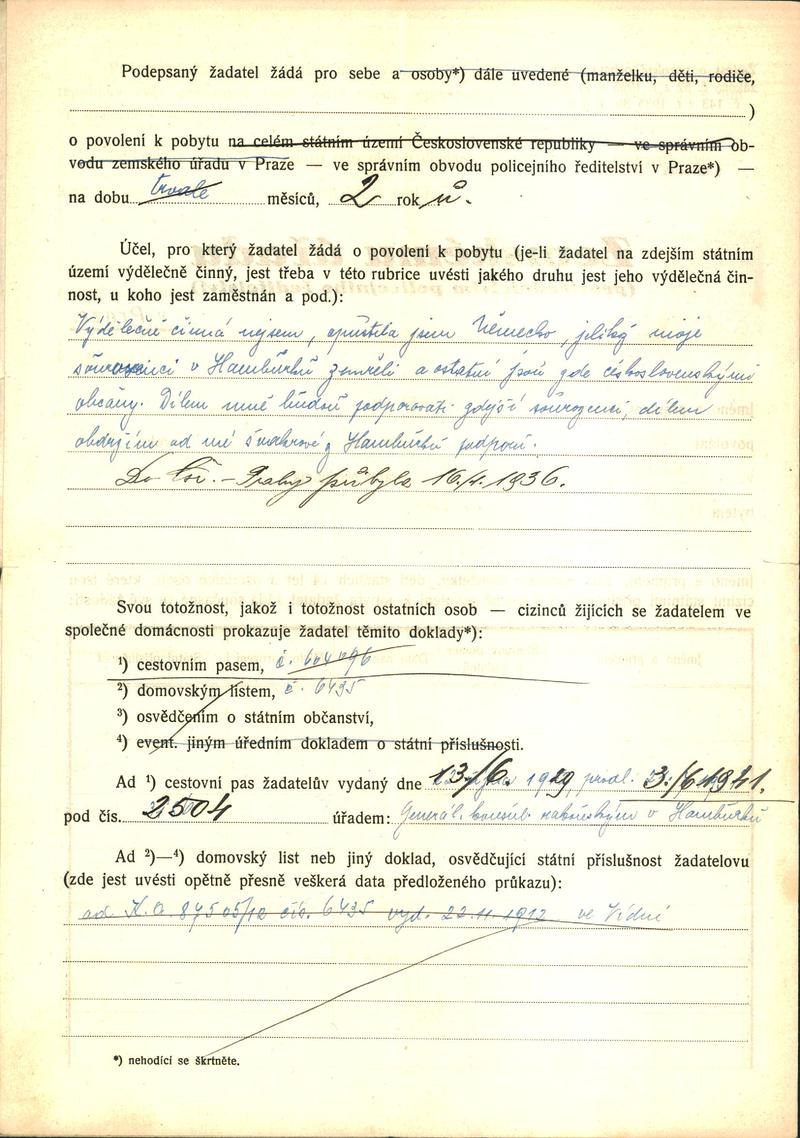 Podepsaný žadatel žádá pro sebe a osoby*) dále uvedené (manželku, děti, rodiče,
)
o povolení k pobytu na celém státním území Československé republiky — ve správním ob-
vodu zemského úřadu v Praze — ve správním obvodu policejního ředitelství v Praze*) —
na dobu trvale měsíců, 2 rok ů.
Účel, pro který žadatel žádá o povolení k pobytu (je-li žadatel na zdejším státním
území výdělečně činný, jest třeba v této rubrice uvésti jakého druhu jest jeho výdělečná čin-
nost, u koho jest zaměstnán a pod.):
Výdělečně činná nejsem, opustila jsem Německo, jelikož moje
sourozenci v Hamburku zemřeli a ostatní jsou zde československými
občany. Dílem mně budou podporovati zdejší sourozenci, dílem
obdržím od mé švakrové z Hamburku podporu.
Do Prahy přibyla 16./4. 1936.
Svou totožnost, jakož i totožnost ostatních osob — cizinců žijících se žadatelem ve
společné domácnosti prokazuje žadatel těmito doklady*):
¹) cestovním pasem, č. 604096
²) domovským listem, č. 6435
³) osvědčením o státním občanství,
⁴) event. jiným úředním dokladem o státní příslušnosti.
Ad ¹) cestovní pas žadatelův vydaný dne 13./6. 1929 prodl. 3./6 1941.
pod čís. 2504 úřadem: Generál. konsul. rakouským v Hamburku
Ad ²)—⁴) domovský list neb jiný doklad, osvědčující státní příslušnost žadatelovu
(zde jest uvésti opětně přesně veškerá data předloženého průkazu):
ad. K.O. 87505/12 čís. 6435 vyd. 22.11.1912 ve Vídni
*) nehodící se škrtněte.